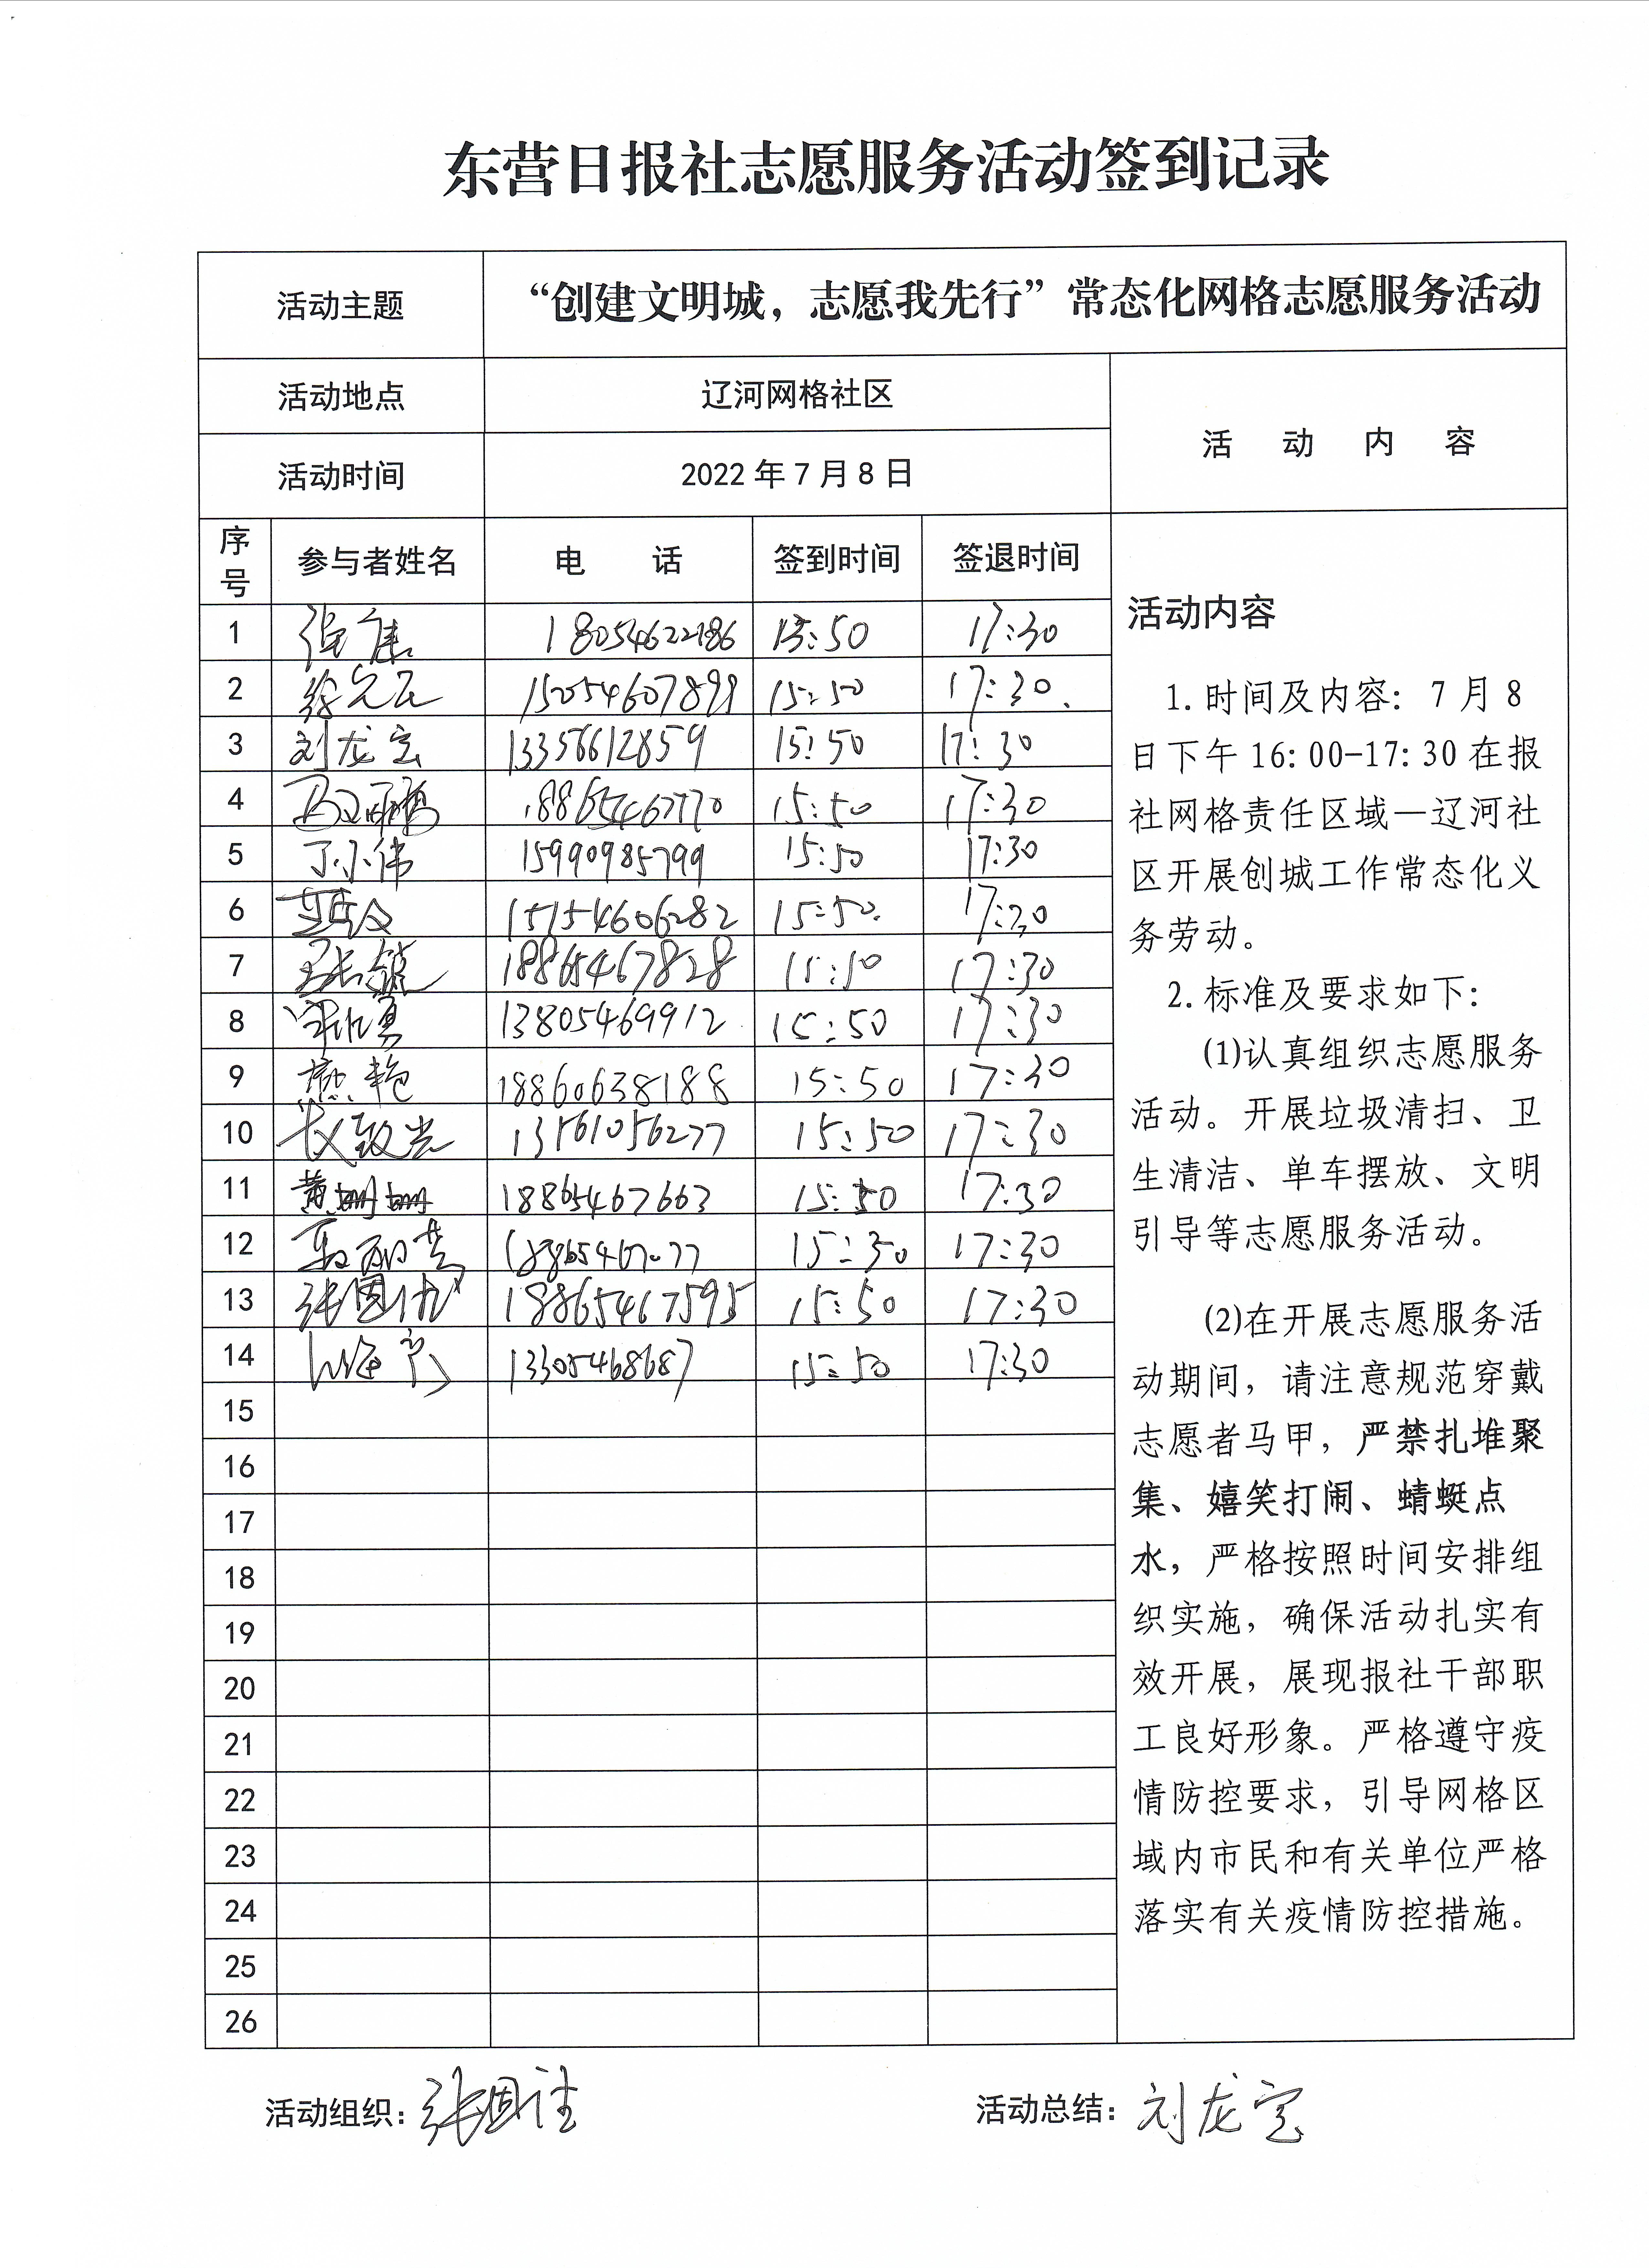 东营日报社志愿服务活动签到记录
活动主题 “创建文明城，志愿我先行”常态化网格志愿服务活动
活动地点 辽河网格社区
活动时间 2022年7月8日
活 动 内 容
序号 参与者姓名 电 话 签到时间 签退时间
1 18054622186 15:50 17:30
2 15054607899 15:50 17:30
3 刘龙宝 13356612859 15:50 17:30
4 18865467770 15:50 17:30
5 丁小伟 15990985799 15:50 17:30
6 15154606282 15:50 17:30
7 18865467828 15:50 17:30
8 13805469912 15:50 17:30
9 燕艳 18860638188 15:50 17:30
10 13561056277 15:50 17:30
11 黄珊珊 18865467663 15:50 17:30
12 18865467077 15:50 17:30
13 18865467595 15:50 17:30
14 13305468687 15:50 17:30
15
16
17
18
19
20
21
22
23
24
25
26
活动内容
1.时间及内容：7月8
日下午16:00-17:30在报
社网格责任区域—辽河社
区开展创城工作常态化义
务劳动。
2.标准及要求如下：
(1)认真组织志愿服务
活动。开展垃圾清扫、卫
生清洁、单车摆放、文明
引导等志愿服务活动。
(2)在开展志愿服务活
动期间，请注意规范穿戴
志愿者马甲，严禁扎堆聚
集、嬉笑打闹、蜻蜓点
水，严格按照时间安排组
织实施，确保活动扎实有
效开展，展现报社干部职
工良好形象。严格遵守疫
情防控要求，引导网格区
域内市民和有关单位严格
落实有关疫情防控措施。
活动组织：
活动总结：刘龙宝